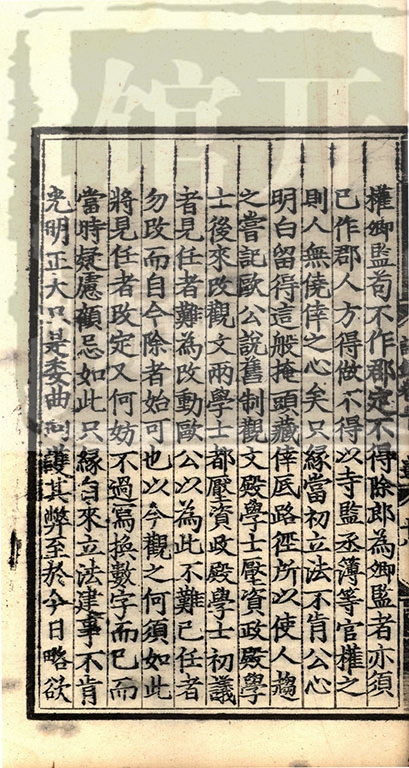 權卿監苟不作郡定不得除郎為卿監者亦須
已作郡人方得做不得以寺監丞簿等官權之
則人無僥倖之心矣只緣當初立法不肯公心
明白留得這般掩頭藏倖底路徑所以使人趨
之嘗記歐公說舊制觀文殿學士壓資政殿學
士後來改觀文兩學士都壓資政殿學士初議
者見任者難為改動歐公以為此不難已任者
勿改而自今除者始可也以今觀之何須如此
將見任者改定又何妨不過寫換數字而已而
當時疑慮顧忌如此只緣自來立法建事不肯
光明正大只是委曲回護其弊至於今日略欲